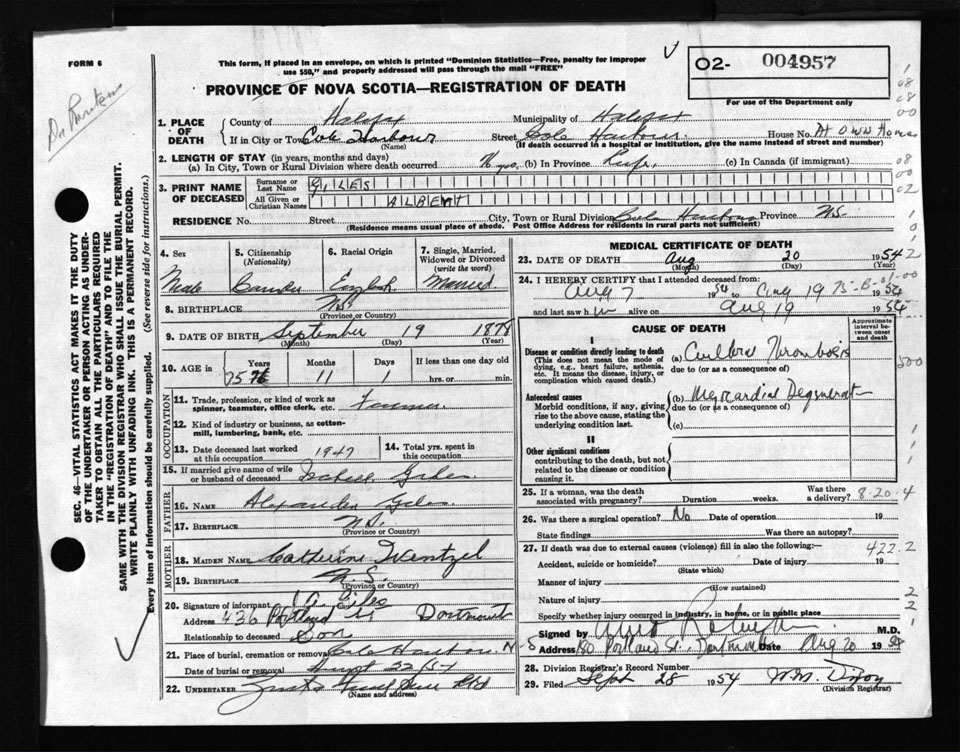 FORM 6
This form, if placed in an envelope, on which is printed "Dominion Statistics—Free, penalty for improper
use $50," and properly addressed will pass through the mail "FREE"
PROVINCE OF NOVA SCOTIA—REGISTRATION OF DEATH
02- 004957
For use of the Department only
1. PLACE OF DEATH
County of Halifax Municipality of Halifax
If in City or Town Cole Harbour Street Cole Harbour House No. At Own Home
(Name) (If death occurred in a hospital or institution, give the name instead of street and number)
2. LENGTH OF STAY (in years, months and days)
(a) In City, Town or Rural Division where death occurred yrs. (b) In Province Life (c) In Canada (if immigrant)
3. PRINT NAME OF DECEASED
Surname or Last Name GILES
All Given or Christian Names ALBERT
RESIDENCE No. Street City, Town or Rural Division Cole Harbour Province N.S.
(Residence means usual place of abode. Post Office Address for residents in rural parts not sufficient)
4. Sex Male
5. Citizenship (Nationality)
6. Racial Origin English
7. Single, Married, Widowed or Divorced (write the word) Married
8. BIRTHPLACE N.S.
(Province or Country)
9. DATE OF BIRTH September 19 1878
(Month) (Day) (Year)
10. AGE in Years 75 Months 11 Days 1 If less than one day old
hrs. or min.
OCCUPATION
11. Trade, profession, or kind of work as
spinner, teamster, office clerk, etc. Farmer
12. Kind of industry or business, as cotton-
mill, lumbering, bank, etc.
13. Date deceased last worked at this occupation 1947
14. Total yrs. spent in this occupation
15. If married give name of wife
or husband of deceased Giles
FATHER
16. NAME Alexander Giles
17. BIRTHPLACE N.S.
MOTHER
18. MAIDEN NAME Catherine Wentzel
19. BIRTHPLACE N.S.
(Province or Country)
20. Signature of informant Giles
Address 436 Portland St Dartmouth
Relationship to deceased Son
21. Place of burial, cremation or removal Cole Harbour. N
Date of burial or removal 22/54
22. UNDERTAKER Ltd
(Name and address)
MEDICAL CERTIFICATE OF DEATH
23. DATE OF DEATH Aug 20 1954
(Month) (Day) (Year)
24. I HEREBY CERTIFY that I attended deceased from:
Aug 7 1954 to Aug 19 1954
and last saw him alive on Aug 19 1954
CAUSE OF DEATH
Approximate interval between onset and death
I
Disease or condition directly leading to death
(This does not mean the mode of
dying, e.g., heart failure, asthenia,
etc. It means the disease, injury, or
complication which caused death.)
(a) Cerebral Thrombosis
due to (or as a consequence of)
Antecedent causes
Morbid conditions, if any, giving
rise to the above cause, stating the
underlying condition last.
(b) Myocardial Degenerat
due to (or as a consequence of)
(c)
II
Other significant conditions
contributing to the death, but not
related to the disease or condition
causing it.
25. If a woman, was the death
associated with pregnancy? Duration weeks. Was there a delivery? 8-20-4
26. Was there a surgical operation? No Date of operation 19
State findings Was there an autopsy?
27. If death was due to external causes (violence) fill in also the following:— 422.2
Accident, suicide or homicide? Date of injury 19
(State which)
Manner of injury
(How sustained)
Nature of injury
Specify whether injury occurred in industry, in home, or in public place
Signed by M.D.
Address 180 Portland St., Dartmouth Date Aug 20 1954
28. Division Registrar's Record Number
29. Filed Sept 28 1954 W.M.
(Division Registrar)
SEC. 46—VITAL STATISTICS ACT MAKES IT THE DUTY
OF THE UNDERTAKER OR PERSON ACTING AS UNDER-
TAKER TO OBTAIN ALL THE PARTICULARS REQUIRED
IN THE "REGISTRATION OF DEATH" AND TO FILE THE
SAME WITH THE DIVISION REGISTRAR WHO SHALL ISSUE THE BURIAL PERMIT.
WRITE PLAINLY WITH UNFADING INK. THIS IS A PERMANENT RECORD.
Every item of information should be carefully supplied. (See reverse side for instructions.)